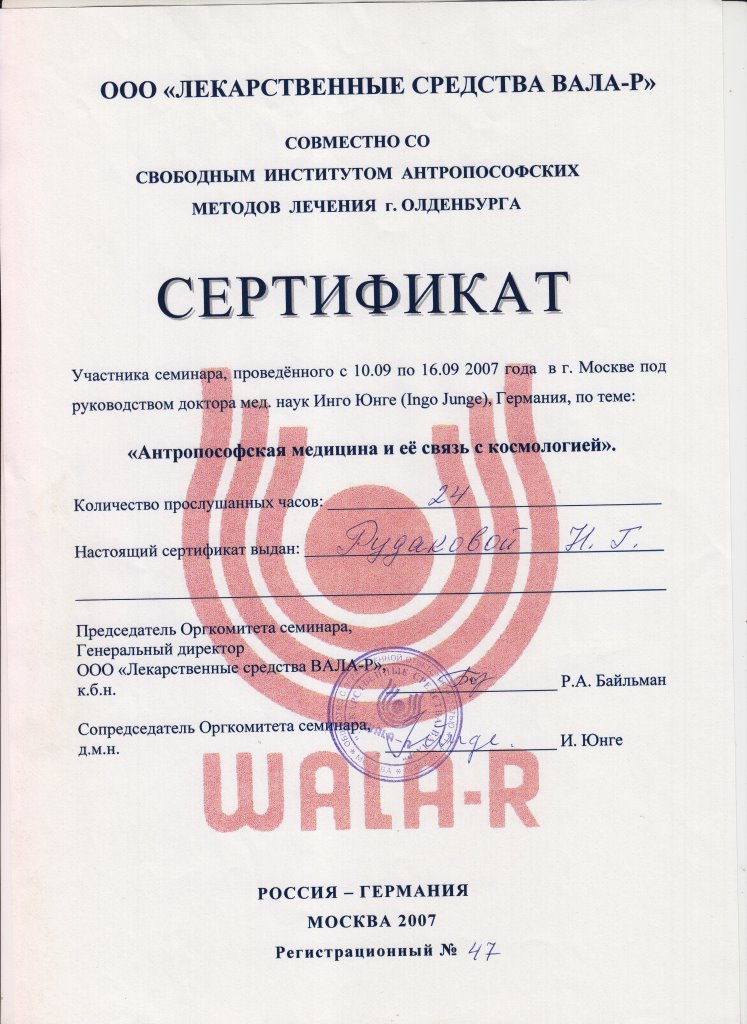 ООО «ЛЕКАРСТВЕННЫЕ СРЕДСТВА ВАЛА-Р»
СОВМЕСТНО СО
СВОБОДНЫМ ИНСТИТУТОМ АНТРОПОСОФСКИХ
МЕТОДОВ ЛЕЧЕНИЯ г. ОЛДЕНБУРГА
СЕРТИФИКАТ
Участника семинара, проведённого с 10.09 по 16.09 2007 года в г. Москве под
руководством доктора мед. наук Инго Юнге (Ingo Junge), Германия, по теме:
«Антропософская медицина и её связь с космологией».
Количество прослушанных часов: 24
Настоящий сертификат выдан: Рудаковой Н. Г.
Председатель Оргкомитета семинара,
Генеральный директор
ООО «Лекарственные средства ВАЛА-Р»,
к.б.н. Р.А. Байльман
Сопредседатель Оргкомитета семинара,
д.м.н. И. Юнге
WALA-R
РОССИЯ – ГЕРМАНИЯ
МОСКВА 2007
Регистрационный № 47